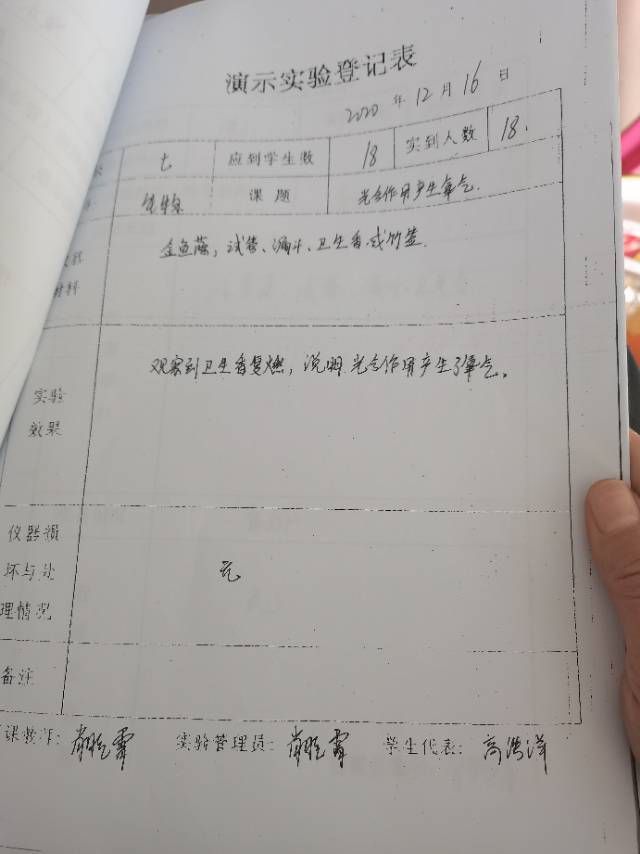 演示实验登记表
2020 年 12 月 16 日
七 应到学生数 18 实到人数 18.
生物 课题 光合作用产生氧气.
金鱼藻，试管、漏斗、卫生香或竹签.
材料
观察到卫生香复燃，说明光合作用产生了氧气。
实验
效果
仪器损
坏与处 无
理情况
备注
课教师: 实验管理员: 学生代表: 高洪洋